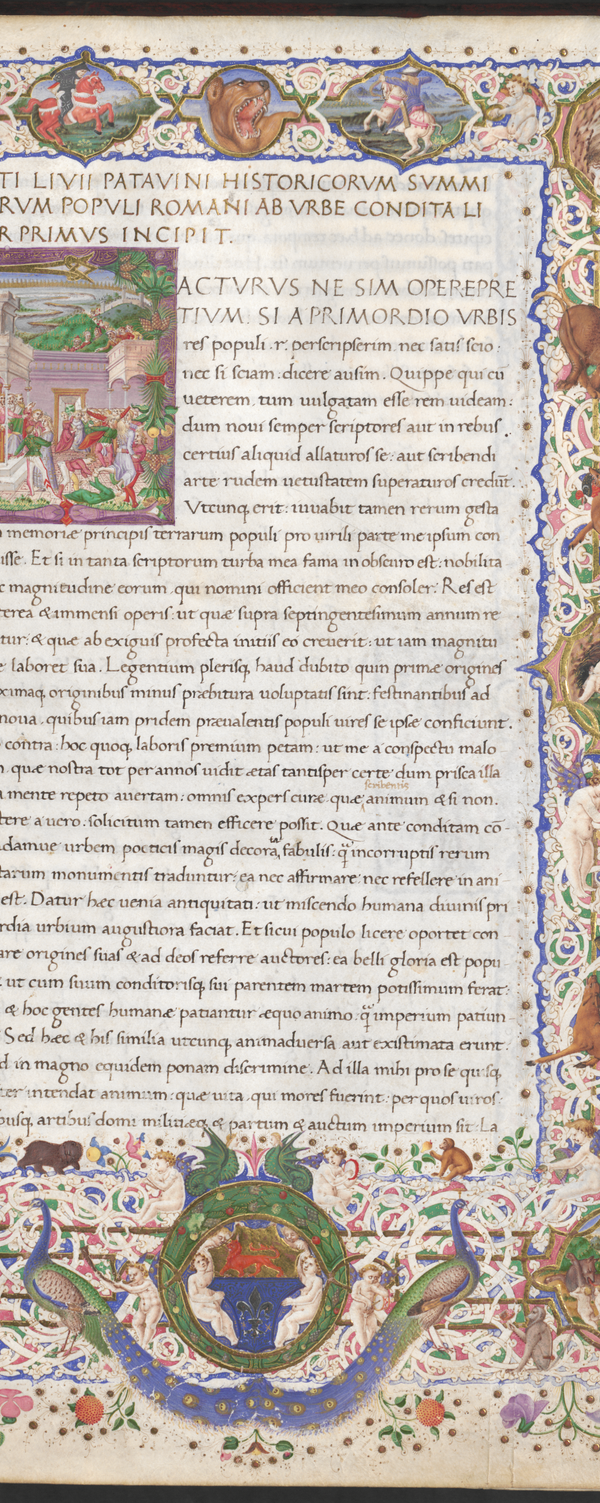 TI LIVII PATAVINI HISTORICORVM SVMMI
RVM POPVLI ROMANI AB VRBE CONDITA LI
R PRIMVS INCIPIT.
ACTVRVS NE SIM OPEREPRE
TIVM. SI A PRIMORDIO VRBIS
res populi .r. perscripserim. nec satis scio.
nec si sciam. dicere ausim. Quippe qui cū
ueterem. tum uulgatam esse rem uideam:
dum noui semper scriptores aut in rebus.
certius aliquid allaturos se: aut scribendi
arte rudem uetustatem superaturos credūt.
Vtcunq erit: iuuabit tamen rerum gesta
memoriæ principis terrarum populi pro uirili parte me ipsum con
isse. Et si in tanta scriptorum turba mea fama in obscuro est: nobilita
magnitudine eorum. qui nomini officient meo consoler. Res est
terea & immensi operis: ut quæ supra septingentesimum annum re
tur: & quæ ab exiguis profecta initiis eo creuerit: ut iam magnitu
e laboret sua. Legentium plerisq haud dubito quin primæ origines
ximaq originibus minus præbitura uoluptatis sint: festinantibus ad
noua. quibus iam pridem præualentis populi uires se ipsæ conficiunt.
contra: hoc quoq laboris premium petam: ut me a conspectu malo
quæ nostra tot per annos uidit ætas tantisper certe dum prisca illa
scribentis
mente repeto auertam: omnis expers curæ quæ animum & si non.
tere a uero. solicitum tamen efficere possit. Quæ ante conditam cō
damue urbem poeticis magis decora fabulis: q̄ incorruptis rerum
tarum monumentis traduntur: ea nec affirmare nec refellere in ani
est. Datur hæc uenia antiquitati: ut miscendo humana diuinis pri
rdia urbium augustiora faciat. Et si cui populo licere oportet con
are origines suas & ad deos referre auctores: ea belli gloria est popu
ut cum suum conditorisq sui parentem martem potissimum ferat:
& hoc gentes humanæ patiantur æquo animo. q̄ imperium patiun
Sed hæc & his similia utcunq animaduersa aut existimata erunt.
d in magno equidem ponam discrimine. Ad illa mihi pro se quisq
ter intendat animum: quæ uita. qui mores fuerint: per quos uiros
busq artibus domi militiæq & partum & auctum imperium sit. La